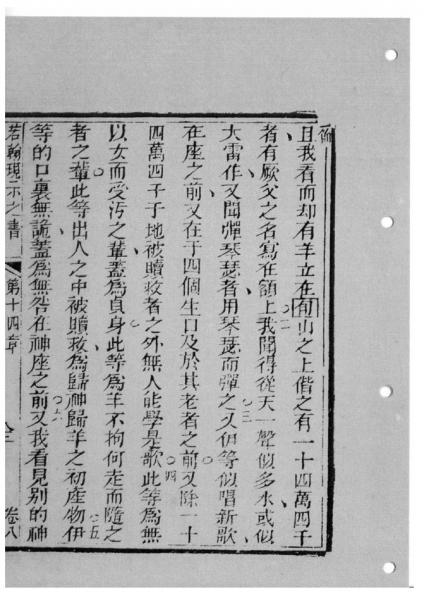 且我看而却有羊立在旬山之上偕之有一十四萬四千
者有厥父之名寫在額上我聞得從天一聲似多水或似
大雷作又聞彈琴瑟者用琴瑟而彈之又伊等似唱新歌
在座之前又在于四個生口及於其老者之前又除一十
四萬四千于地被贖救者之外無人能學是歌此等為無
以女而受污之輩蓋為貞身此等為羊不拘何走而隨之
者之輩此等出人之中被贖救為歸神歸羊之初產物伊
等的口裏無詭蓋為無咎在神座之前又我看見別的神
若翰現示之書 第十四章 卷八